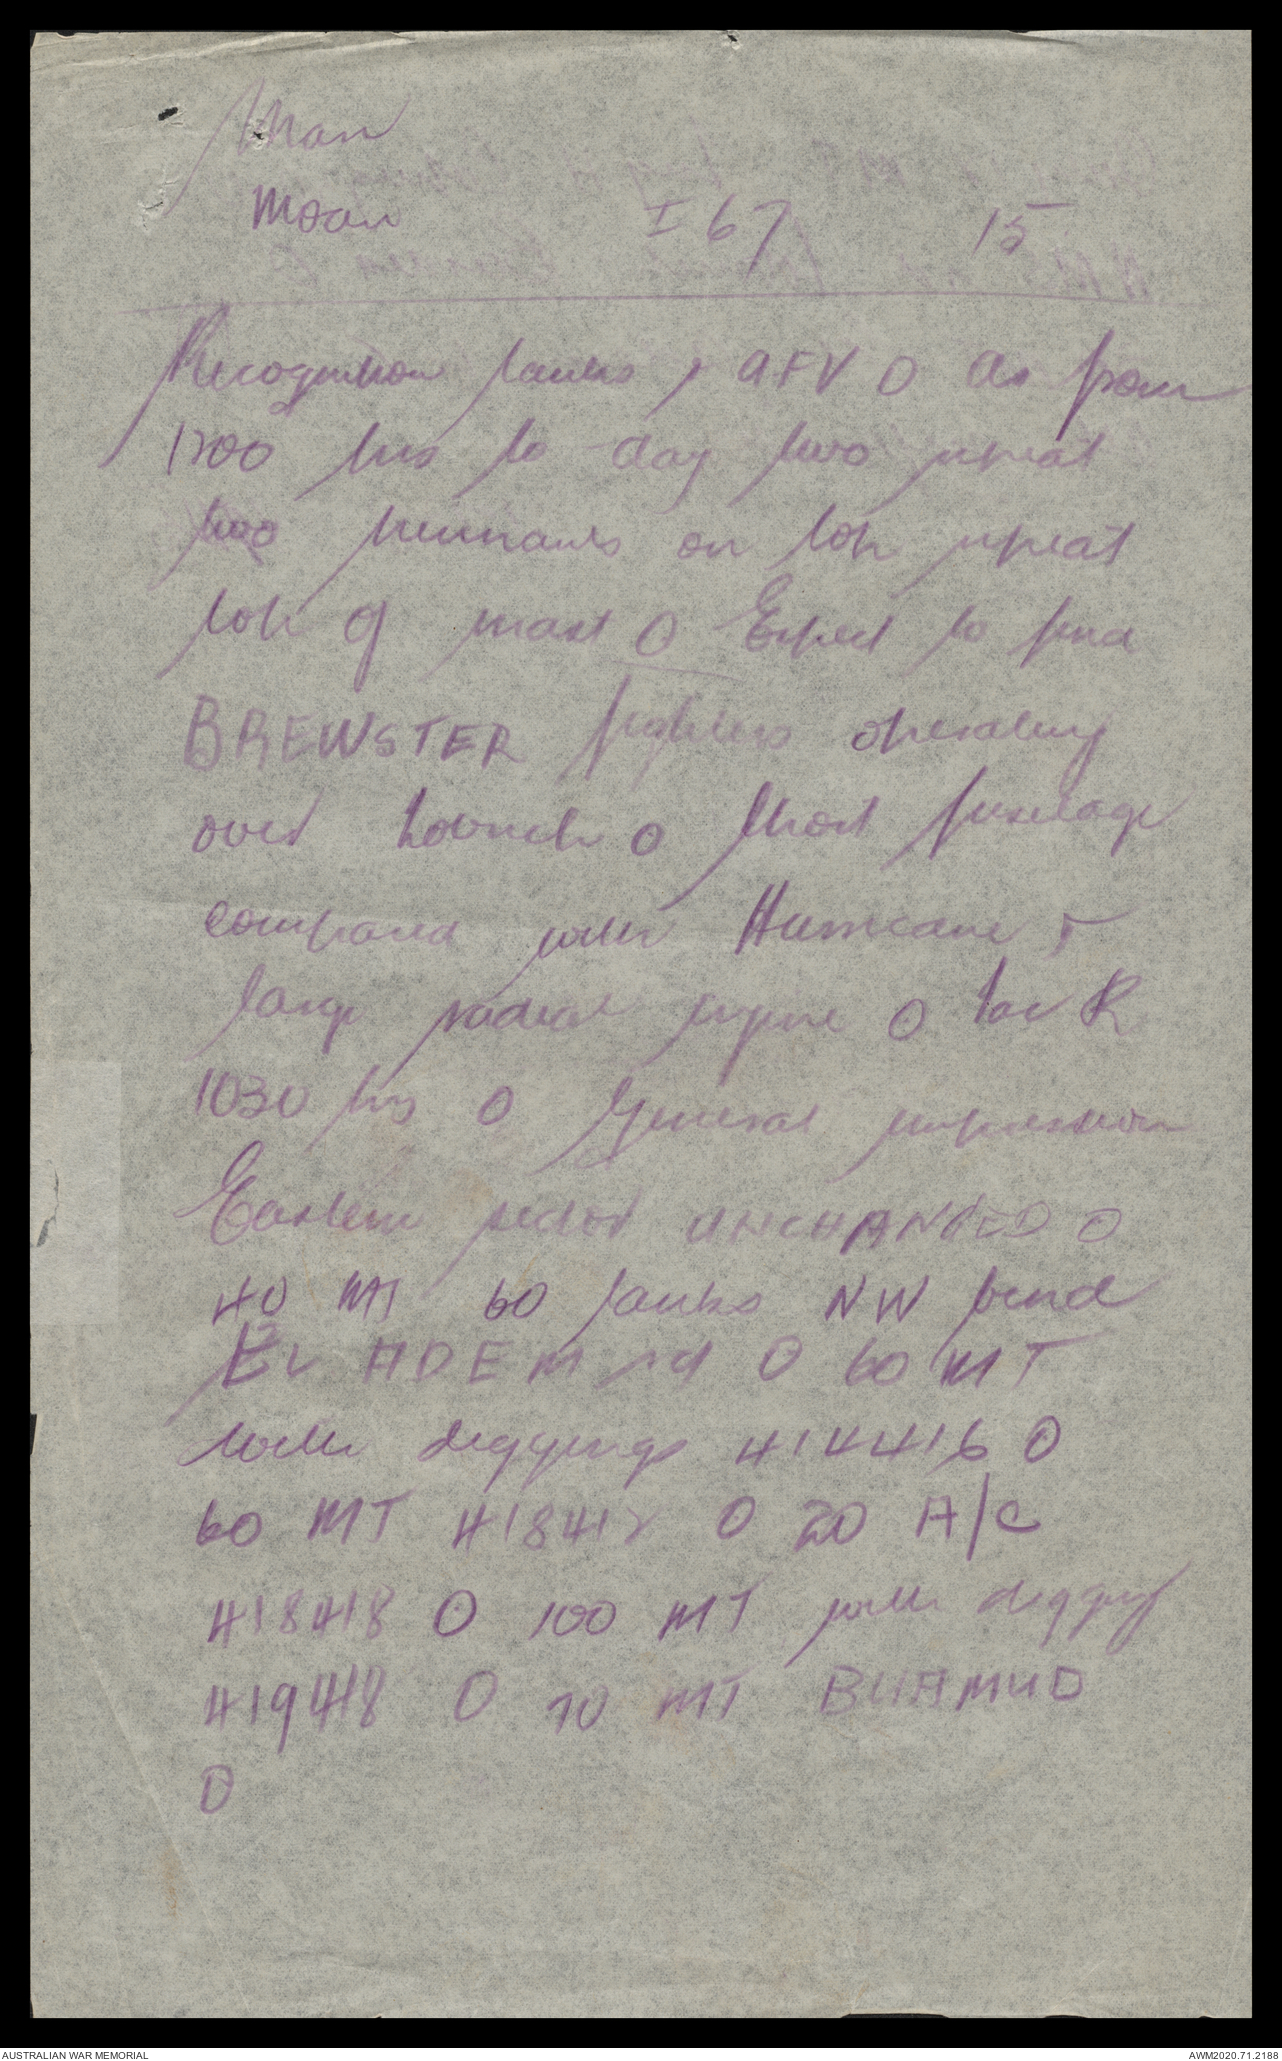 Moan
I 67 15
Recognition tanks & AFV O As from
1200 hrs to-day two repeat
two pennants on top repeat
top of mast O Expect to find
BREWSTER fighters operating
over Tobruch O Short fuselage
compared with Hurricane &
large radial engine O Tac R
1030 hrs O General impression
Eastern sector UNCHANGED O
40 MT 60 tanks NW bend
EL ADEM rd O 60 MT
with diggings 414416 O
60 MT 418412 O 20 A/C
418418 O 100 MT with diggings
419418 O 70 MT BUAMUD
O
AUSTRALIAN WAR MEMORIAL
AWM2020.71.2188